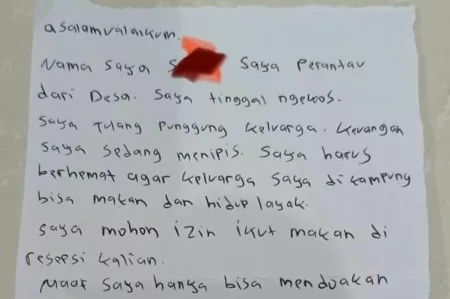 asalamualaikum.
Nama saya S Saya Perantau
dari Desa. Saya tinggal ngekos.
Saya Tulang Punggung Keluarga. Keuangan
Saya sedang menipis. Saya harus
berhemat agar keluarga saya di kampung
bisa makan dan hidup layak.
saya mohon izin ikut makan di
resepsi kalian.
Maaf saya hanya bisa mendoakan